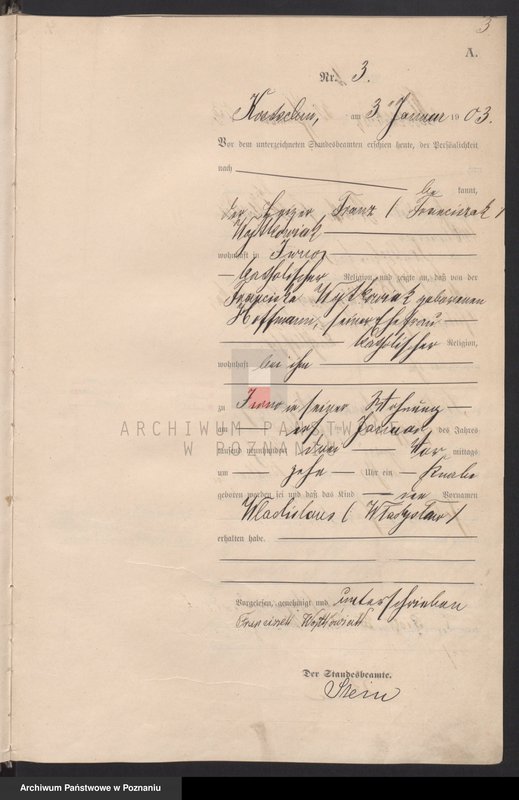 3
A.
Nr. 3.
am 3 Januar 1903.
Vor dem unterzeichneten Standesbeamten erschien heute, der Persönlichkeit
nach
be kannt,
der Franz (Franciszek)
Wojtkowiak
wohnhaft in
catholischer Religion, und zeigte an, daß von der
Franciszka Wojtkowiak geborenen
Hoffmann, seiner Ehefrau
catholischer Religion,
wohnhaft bei ihm
zu in seiner Wohnung
am ersten Januar des Jahres
tausend neunhundert drei Vor mittags
um zehn Uhr ein Knabe
geboren worden sei und daß das Kind den Vornamen
Wladislaus (Władysław)
erhalten habe.
Vorgelesen, genehmigt und unterschrieben
Wojtkowiak
Der Standesbeamte.
Stein
ARCHIWUM PAŃSTWOWE
W POZNANIU
Archiwum Państwowe w Poznaniu